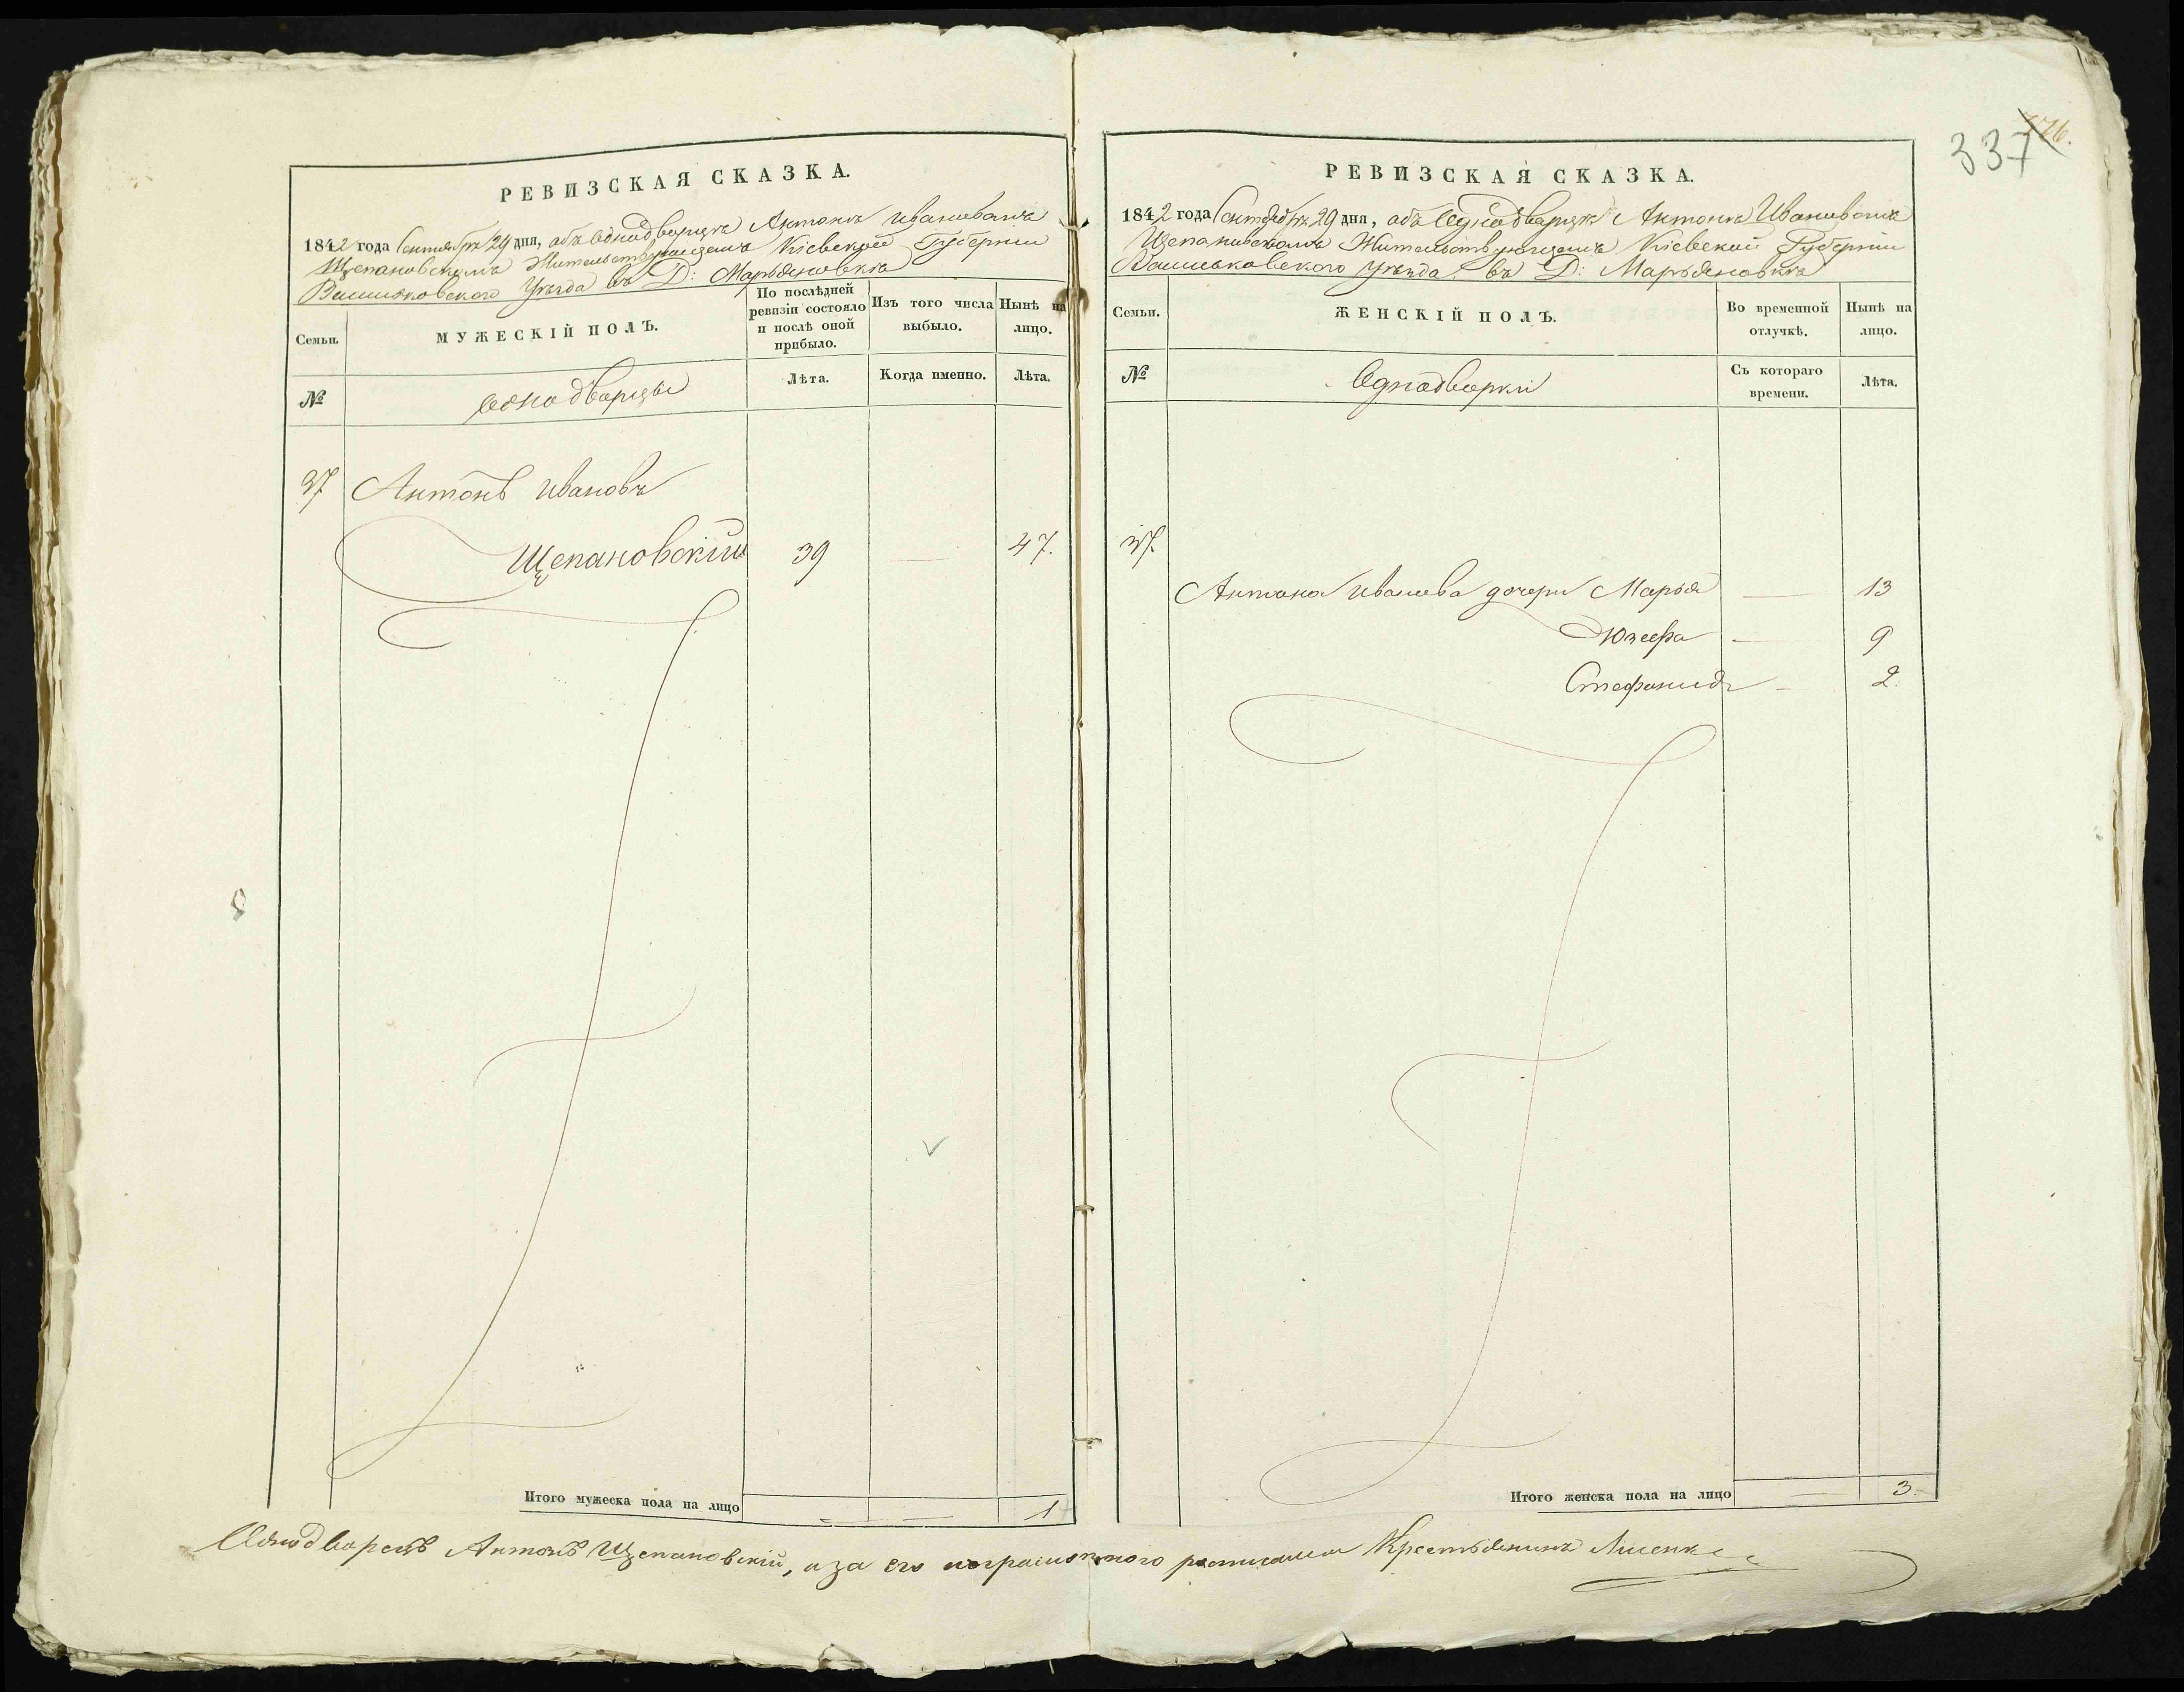 337
РЕВИЗСКАЯ СКАЗКА.
1842 года Сентября 29 дня, объ Однодворцѣ Антонѣ Ивановѣ
Щепановскомъ Жительствующемъ Кіевской Губерніи
Васильковского Уѣзда въ Д: Марьяновкѣ
Семьи.
МУЖЕСКІЙ ПОЛЪ.
По послѣдней ревизіи состояло и послѣ оной прибыло.
Изъ того числа выбыло.
Нынѣ на лицо.
№
Однодворцы
Лѣта.
Когда именно.
Лѣта.
37 Антонъ Ивановъ
Щепановскій 39 — 47.
Итого мужеска пола на лицо — — 1
РЕВИЗСКАЯ СКАЗКА.
1842 года Сентября 29 дня, объ Однодворцѣ Антонѣ Ивановѣ
Щепановскомъ Жительствующемъ Кіевской Губерніи
Васильковского Уѣзда въ Д: Марьяновкѣ
Семьи.
ЖЕНСКІЙ ПОЛЪ.
Во временной отлучкѣ.
Нынѣ на лицо.
№
Однодворки
Съ котораго времени.
Лѣта.
37.
Антона Иванова дочери Марья — 13
Юзефа — 9
Стефанида — 2.
Итого женска пола на лицо — 3.
Однодворецъ Антонъ Щепановскій, а за его неграмотного росписался Крестьянинъ